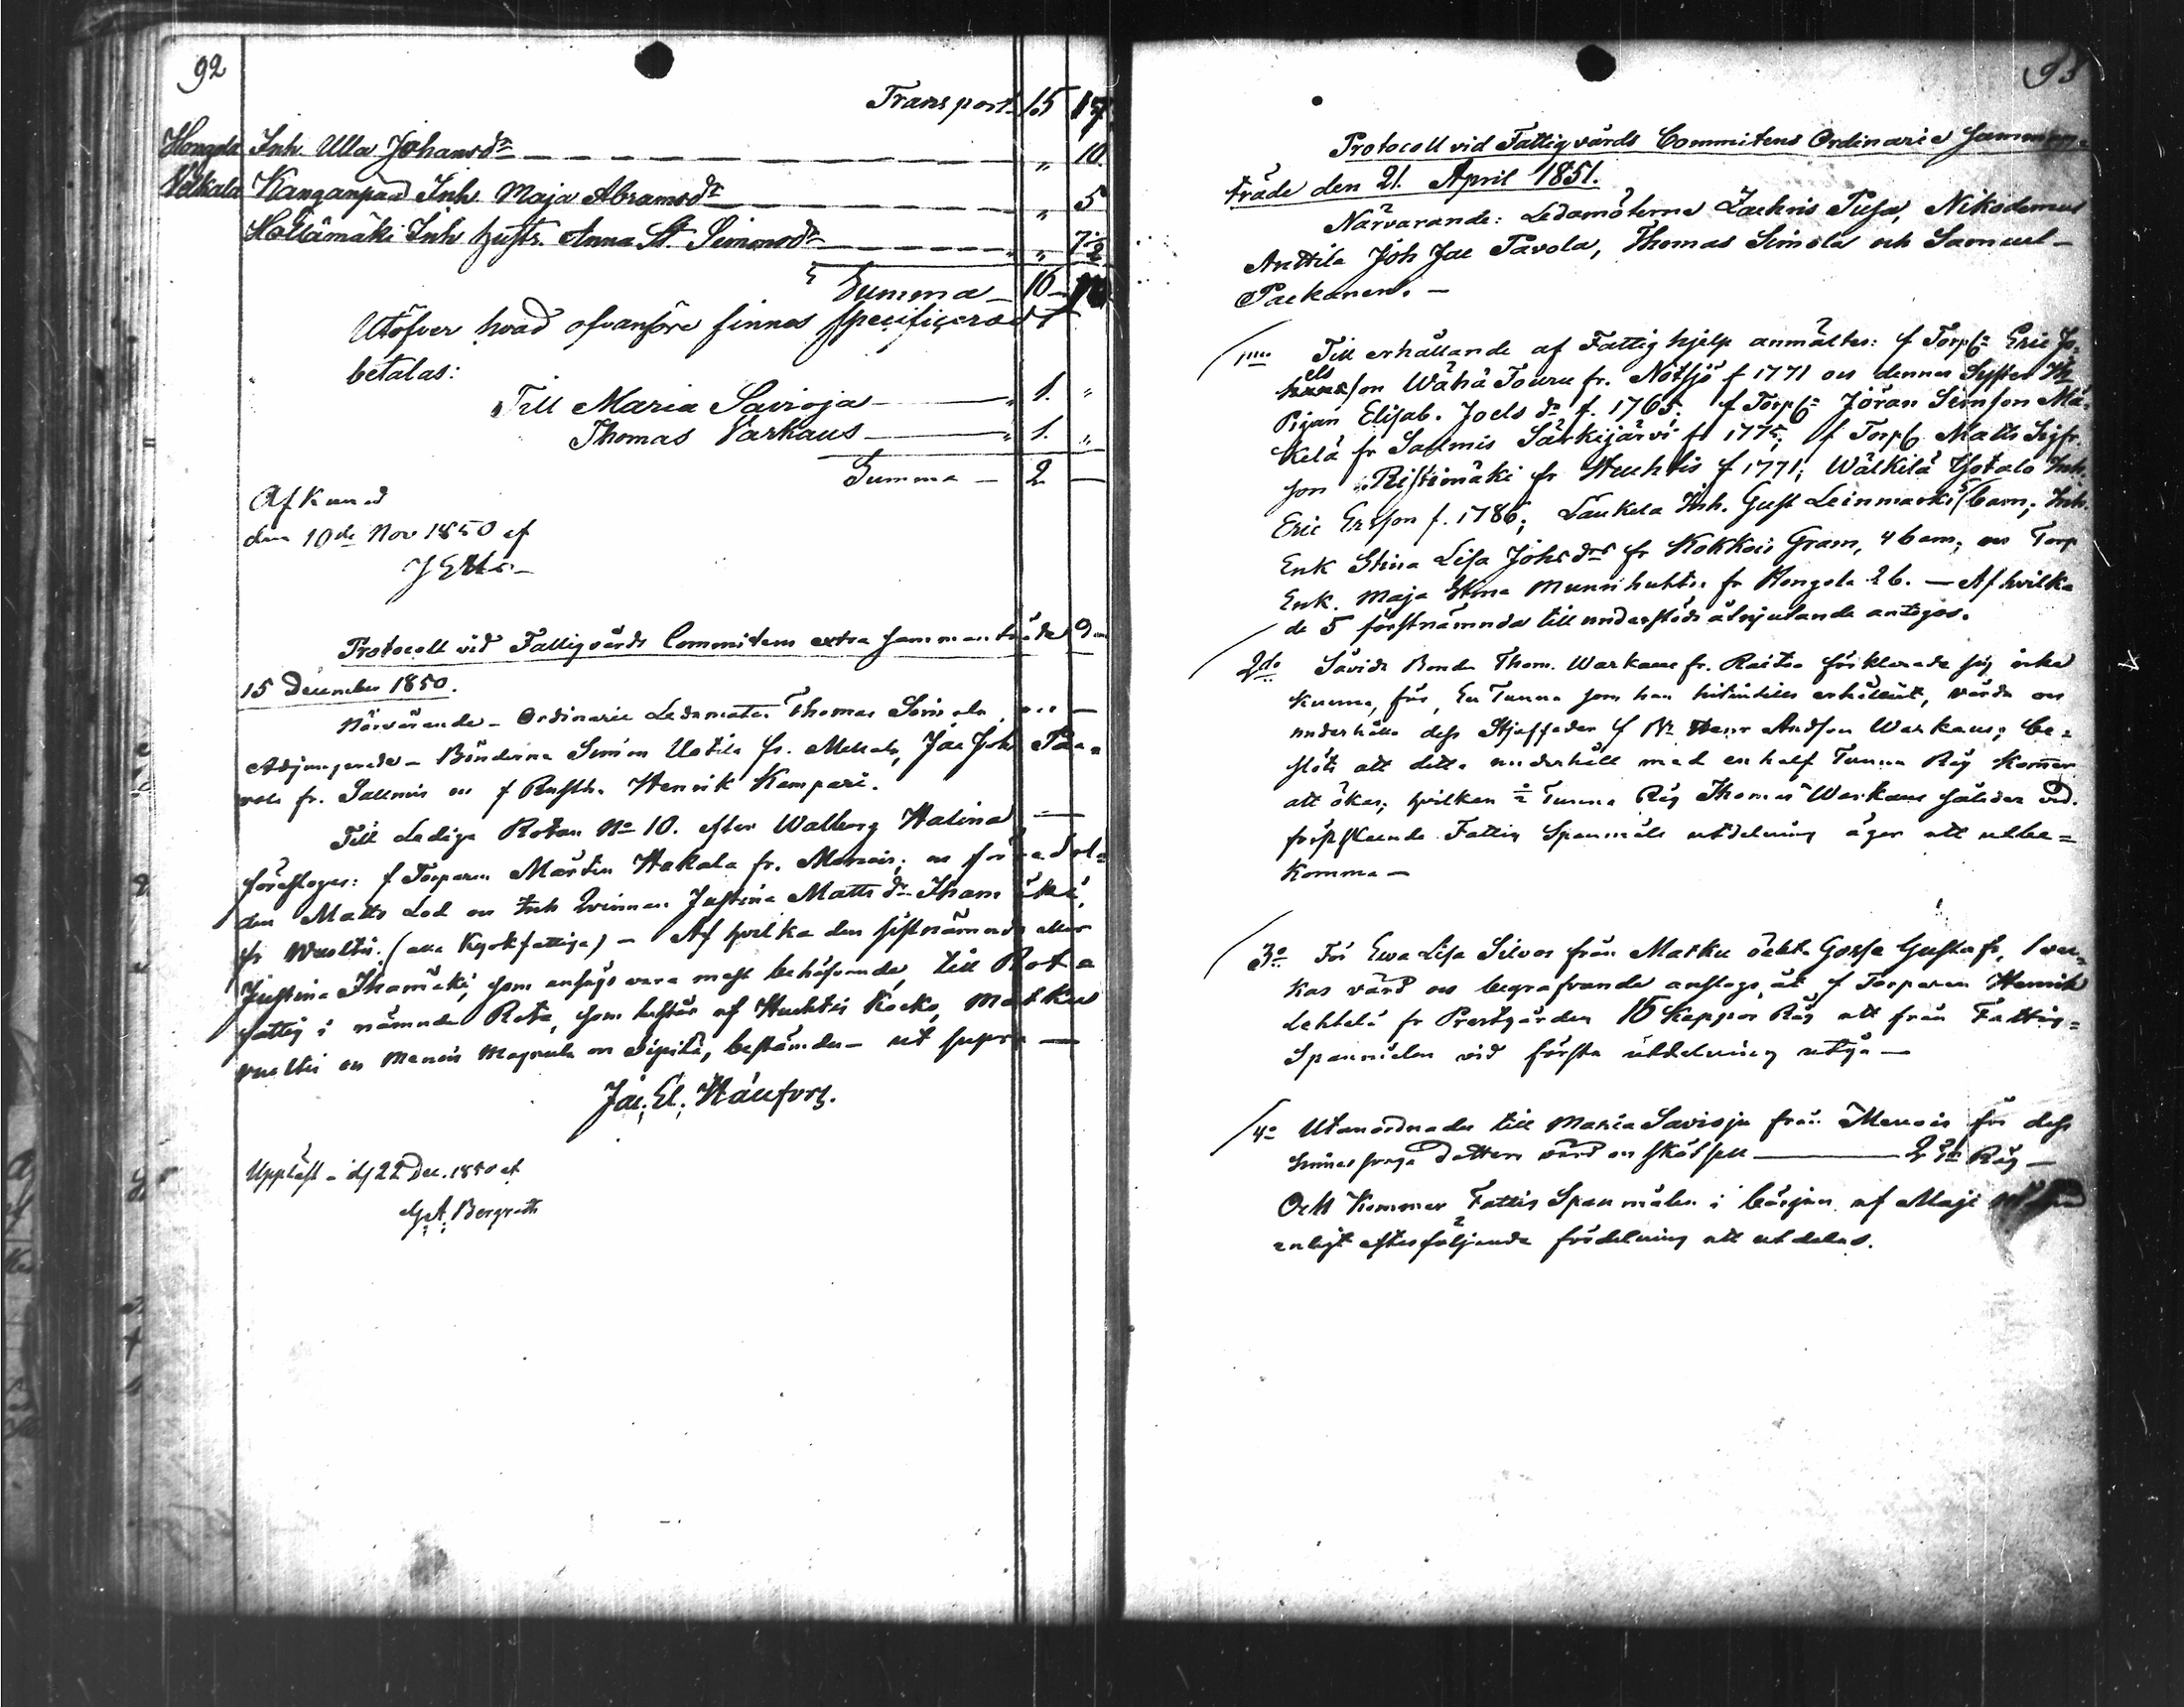 92
Transport 15 17
Hongola Inh. Ulla Johansdr „ 10
Välkala Kanganpad Inh. Maja Abramsdr „ 5
Hollämäki Inh hustr. Anna St. Simonsdr „ 7½
Summa 16
Utöfver hvad ofvanföre finnes specificerad
betalas:
Till Maria Savioja 1. „
Thomas Varkaus 1. „
Summa 2 —
Afkunnad
den 10de Nov 1850 af
Protocoll vid Fattigvårds Committens extra sammanträde d.
15 December 1850.
Närvarande – Ordinarie Ledamoten Thomas Simola,
Adjungerade – Bönderna Simon Uotila fr. Mellola, Jac Joh Pa=
vola fr. Salmis oc f Rusth. Henrik Kampari.
Till Lediga Rotan No 10. efter Walborg Halina
föreslogos: f Torparen Mårten Hakala fr. Menois; oc
den Matts Lod oc Inh Qvinnan Justina Mattsdr Ihamäki,
fr Wuoltis. (alla Kyrkfattiga) – Af hvilka den sistnämnda eller
Justina Ihamäki, som ansågs vara mest behöfvande, till Rote
fattig i nämnde Rote, som består af Huuhtis Kocko, Markku
Wuoltis oc Menois Magnula oc Sipilä, bestämdes – ut supra —
Jac. El. Häufors.
Uppläst – d 22 Dec. 1850 af
G. A. Bergroth
93
Protocoll vid Fattigvårds Committens Ordinarie samman=
träde den 21. April 1851.
Närvarande: Ledamöterne Zachris Pusa, Nikodemus
Anttila Joh Jac Pavola, Thomas Simola och Samuel
Packanen. —
1mo Till erhållande af Fattighjelp anmältes: f Torp. Eric Jo=
elsson Wähä Touru fr. Nötsjö f 1771 oc dennes Syster
Pigan Elisab. Joelsdr f. 1765; f Torp. Jöran Simson Mä=
kelä fr Salmis Särkijärvi f 1775; f Torp Matts Sigfr.
son Ristimäki fr Huuhtis f 1771; Wälkilä Isotalo Inh.
Eric Ersson f. 1786; Laukela Inh. Gust Leinmarks barn; Inh.
Enk Stina Lisa Johsdr fr Kokkois Gram, 4 barn; oc Torp
Enk. Maja Stina Munnhuhta fr Hongola 2 b. — Af hvilka
de 5 förstnämnda till understöds åtnjutande antogos.
2do Såvida Bonden Thom. Warkaus fr. Raitoo förklarade sig icke
kunna, för En Tunna som han hitintills erhållit, vårda oc
underhålla dess Styffader f Henr Andson Warkaus; be=
slöts att detta underhåll med en half Tunna Råg kommer
att ökas; hvilken ½ Tunna Råg Thomas Warkaus således vid
förestående Fattig Spanmåls utdelning äger att utbe=
komma —
3o För Ewa Lisa Silvos från Marku oäkta Gosse Gustafs, 1 vec=
kas vård oc begrafvande anslogs åt f Torparen Henrik
Lehtelä fr Prestgården 10 Kappor Råg att från Fattig=
Spanmålen vid första utdelning utgå —
4o Utanordnades till Maria Savioja från Menois för dess
sinnessvaga Dotters vård oc skötsel — 2 Råg —
Och Kommer Fattig Spanmålen i början af Maji
enligt efterföljande fördelning att utdelas.